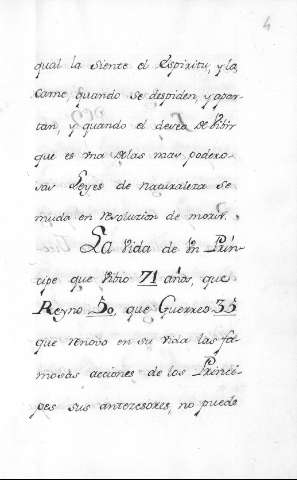 4
qual la siente el Espiritu, y la
Carne, quando se despiden, y apar-
tan, y quando el deseo de vivir
que es vna delas mas podero-
sas Leyes de naturaleza se
muda en revoluzion de morir.
La vida de vn Prin-
cipe que vivio 71 años, que
Reyno 50, que Guerreo 35
que renovo en su vida las fa-
mosas acciones de los Princi-
pes sus antecesores, no puede